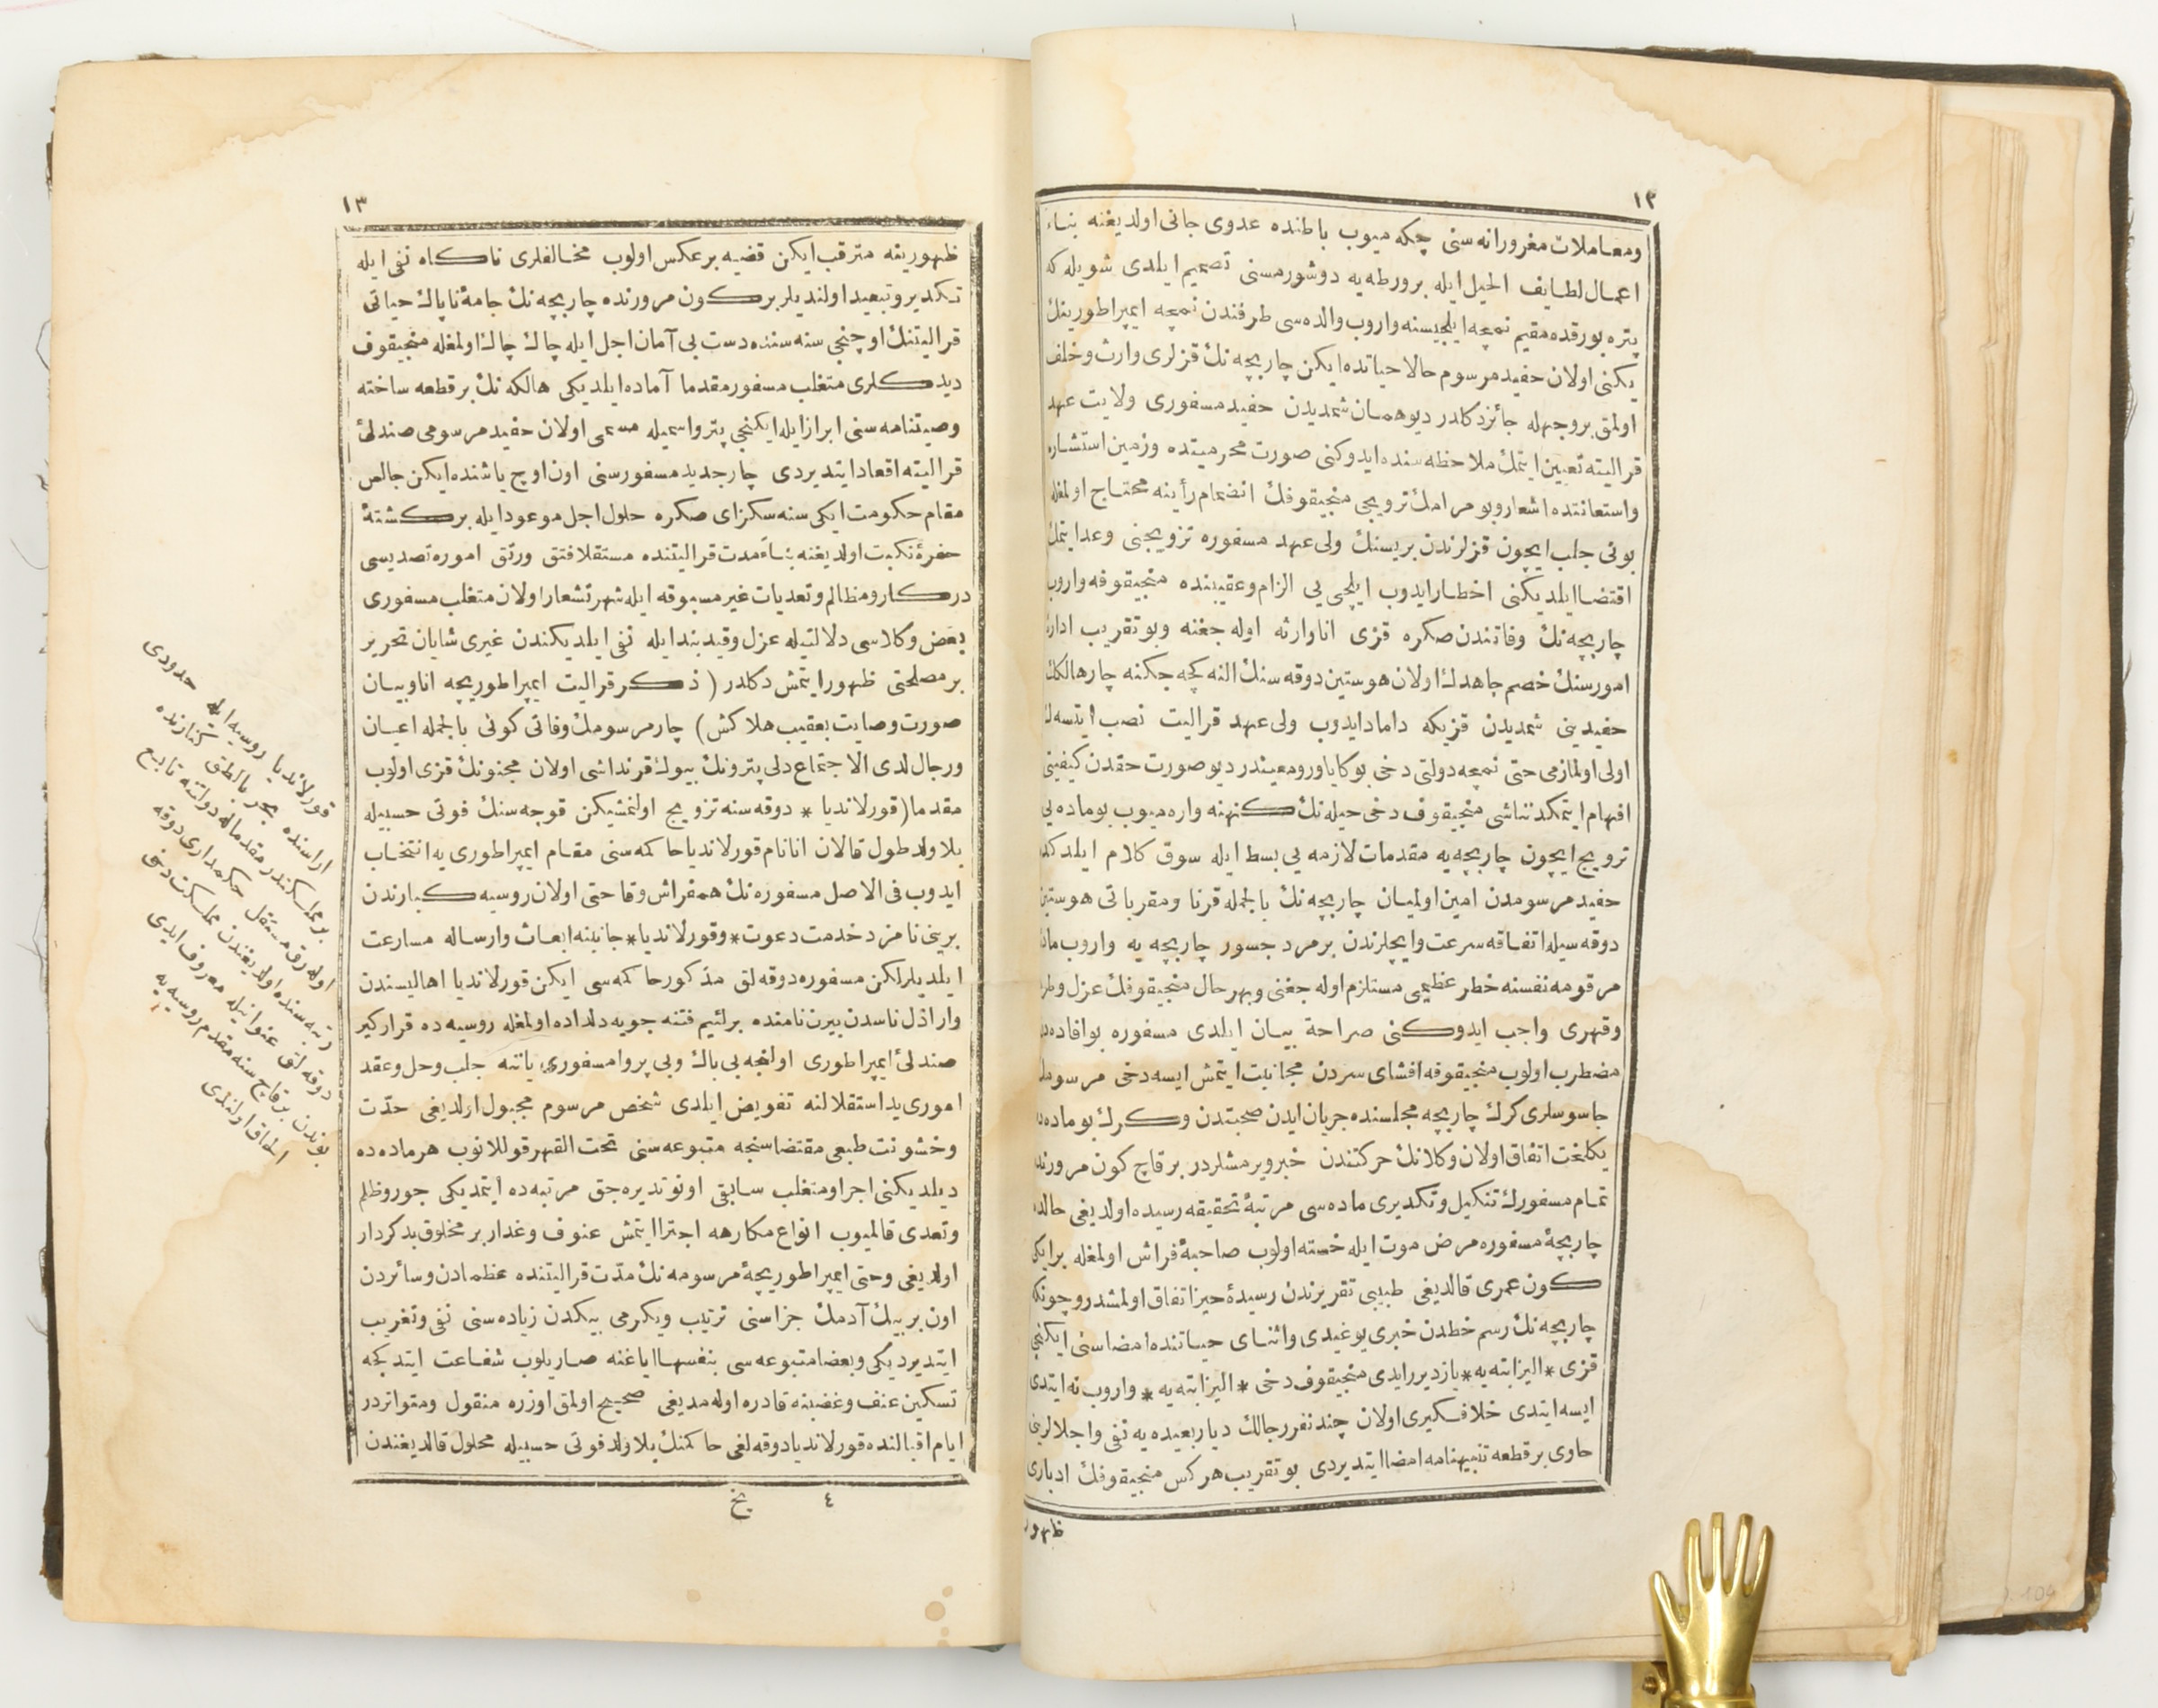 ١٢
ومعاملات مغرورانه سنی چکه میوب باطنده عدوی جانی اولدیغنه بناء
اعمال لطایف الحیل ایله برورطه یه دوشورمسنی تصمیم ایلدی شویله که
پتره بورقده مقیم نمچه ایلچیسنه واروب والده سی طرفندن نمچه ایمپراطورینك
یکنی اولان حفید مرسوم حالا حیاتده ایکن چاریچه نك قزلری وارث وخلف
اولمق بروجهله جائز دکلدر دیو همان شمدیدن حفید مسفوری ولایت عهد
قرالیته تعیین ایتمك ملاحظه سنده ایدوکنی صورت محرمیتده وزمین استشاره
واستعانتده اشعار وبو مرامك ترویجی منجیقوفك انضمام رأینه محتاج اولمغله
بونی جلب ایچون قزلرندن بریسنك ولی عهد مسفوره تزویجنی وعد ایتمك
اقتضا ایلدیکنی اخطار ایدوب ایلچی یی الزام وعقیبنده منجیقوفه واروب
چاریچه نك وفاتندن صکره قزی انا وارثه اوله جغنه وبو تقریب اداره
امورسنك خصم جاهدك اولان هوستین دوقه سنك النه کچه جکنه چار هالكك
حفیدینی شمدیدن قزیکه داماد ایدوب ولی عهد قرالیت نصب ایتسه ك
اولی اولمازمی حتی نمچه دولتی دخی بوکا یاورومعیندر دیو صورت حقدن کیفیتی
افهام ایتمکد نناشی منجیقوف دخی حیله نك کنهنه واره میوب بوماده یی
ترویج ایچون چاریچه یه مقدمات لازمه یی بسط ایله سوق کلام ایلدکده
حفید مرسومدن امین اولمیان چاریچه نك بالجمله قرنا ومقرباتی هوستین
دوقه سیله اتفاقه سرعت وایچلرندن برمرد جسور چاریچه یه واروب ماده
مرقومه نفسنه خطر عظیمی مستلزم اوله جغنی وبهرحال منجیقوفك عزل وطرد
وقهری واجب ایدوکنی صراحة بیان ایلدی مسفوره بوافاده دن
مضطرب اولوب منجیقوفه افشای سردن مجانبت ایتمش ایسه دخی مرسومك
جاسوسلری کرك چاریچه مجلسنده جریان ایدن صحبتدن وکرك بوماده ده
یکلخت اتفاق اولان وکلانك حرکتندن خبرویرمشلردر برقاچ کون مرورنده
تمام مسفورك تنکیل وتکدیری ماده سی مرتبۀ تحقیقه رسیده اولدیغی حالده
چاریچۀ مسفوره مرض موت ایله خسته اولوب صاحبۀ فراش اولمغله برایکی
کون عمری قالدیغی طبیبی تقریرندن رسیدۀ حیز اتفاق اولمشدر وچونکه
چاریچه نك رسم خطدن خبری یوغیدی واثنای حیاتنده امضاسنی ایکنجی
قزی * الیزابته یه * یازدیررایدی منجیقوف دخی * الیزابته یه * واروب نه ایتدی
ایسه ایتدی خلافکیری اولان چند نفر رجالك دیار بعیده یه نفی واجلالرینی
حاوی برقطعه تنبیهنامه امضا ایتدیردی بوتقریب هرکس منجیقوفك ادباری
ظهور
١٣
ظهورینه مترقب ایکن قضیه برعکس اولوب مخالفلری ناکاه نفی ایله
تکدیر وتبعید اولندیلر برکون مرورنده چاریچه نك جامۀ ناپاك حیاتی
قرالیتنك اوچنجی سنه سنده دست بی آمان اجل ایله چاك چاك اولمغله منجیقوف
دیدکلری متغلب مسفور مقدما آماده ایلدیکی هالکه نك برقطعه ساخته
وصیتنامه سنی ابراز ایله ایکنجی پترو اسمیله مسمی اولان حفید مرسومی صندلی
قرالیته اقعاد ایتدیردی چار جدید مسفورسنی اون اوچ یاشنده ایکن جالس
مقام حکومت ایکی سنه سکز ای صکره حلول اجل موعود ایله برکشتۀ
حفرۀ نکبت اولدیغنه بناءً مدت قرالیتنده مستقلا فتق ورتق اموره تصدیسی
درکار ومظالم وتعدیات غیر مسبوقه ایله شهرتشعار اولان متغلب مسفوری
بعض وکلاسی دلالتیله عزل وقید بند ایله نفی ایلدیکندن غیری شایان تحریر
بر مصلحتی ظهور ایتمش دکلدر ( ذکر قرالیت ایمپراطوریچه انا وبیان
صورت وصایت بعقیب هلاکش ) چار مرسومك وفاتی کونی بالجمله اعیان
ورجال لدی الاجتماع دلی پترونك بیوك قرنداشی اولان مجنونك قزی اولوب
مقدما (قورلاندیا * دوقه سنه تزویج اولنمشیکن قوجه سنك فوتی حسبیله
بلا ولد طول قالان انا نام قورلاندیا حاکمه سنی مقام ایمپراطوری یه انتخاب
ایدوب فی الاصل مسفوره نك همفراش وقاحتی اولان روسیه کبارندن
برینی نامزد خدمت دعوت * وقورلاندیا * جانبنه ابعاث وارساله مسارعت
ایلدیلر لکن مسفوره دوقه لق مذکور حاکمه سی ایکن قورلاندیا اهالیسندن
واراذل ناسدن بیرن نامنده برلئیم فتنه جویه دلداده اولمغله روسیه ده قرارکیر
صندلی ایمپراطوری اولنجه بی باك وبی پروا مسفوری یاننه جلب وحل وعقد
اموری ید استقلالنه تفویض ایلدی شخص مرسوم مجبول اولدیغی حدّت
وخشونت طبعی مقتضاسنجه متبوعه سنی تحت القهر قوللانوب هر ماده ده
دیلدیکنی اجرا ومتغلب سابقی اونوتدیره جق مرتبه ده ایتمدیکی جور وظلم
وتعدی قالمیوب انواع مکارهه اجترا ایتمش عنوف وغدار برمخلوق بدکردار
اولدیغی وحتی ایمپراطوریچۀ مرسومه نك مدّت قرالیتنده عظمادن وسائردن
اون بر بیك آدمك جزاسنی ترتیب ویکرمی بیکدن زیاده سنی نفی وتغریب
ایتدیردیکی وبعضا متبوعه سی بنفسها ایاغنه صاریلوب شفاعت ایتدکجه
تسکین عنف وغضبنه قادره اوله مدیغی صحیح اولمق اوزره منقول ومتواتردر
ایام اقبالنده قورلاندیا دوقه لغی حاکمنك بلا ولد فوتی حسبیله محلول قالدیغندن
٤
یخ
قورلاندیا روسیه ایله حدودی
اراسنده بحر بالطق کنارنده
بر مملکتدر مقدما له دولتنه تابع
اوله رق مستقل حکمداری دوقه
رتبه سنده اولدیغندن مملکت دخی
دوقه لق عنوانیله معروف ایدی
بوندن برقاچ سنه مقدم روسیه یه
الحاق اولندی